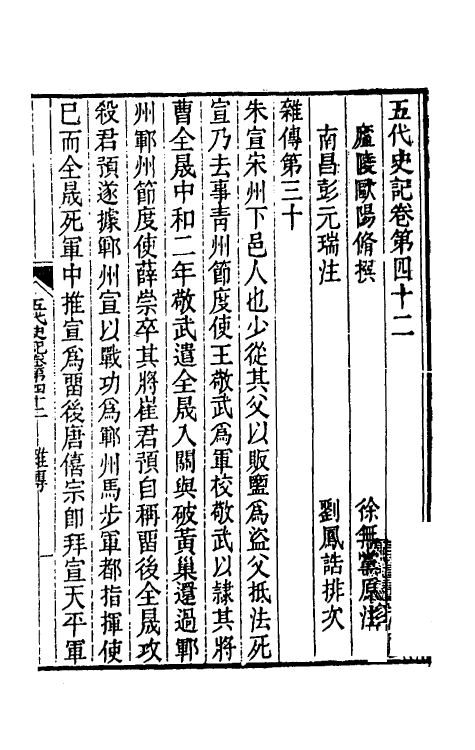 五代史記卷第四十二
廬陵歐陽脩撰　徐無黨原注
南昌彭元瑞注　劉鳳誥排次
雜傳第三十
朱宣宋州下邑人也少從其父以販鹽爲盜父抵法死
宣乃去事青州節度使王敬武爲軍校敬武以隸其將
曹全晟中和二年敬武遣全晟入關與破黃巢還過鄆
州鄆州節度使薛崇卒其將崔君預自稱畱後全晟攻
殺君預遂據鄆州宣以戰功爲鄆州馬步軍都指揮使
已而全晟死軍中推宣爲畱後唐僖宗卽拜宣天平軍
五代史記卷第四十二　雜傳